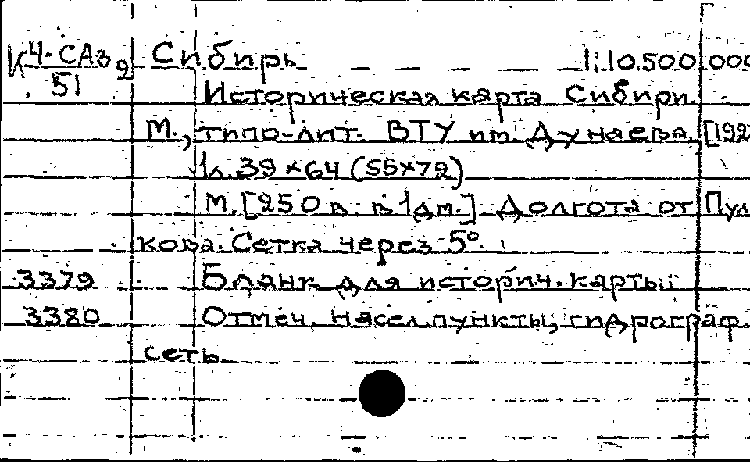 К 4-САз 2 Сибирь 1:10.500.000
51
Историческая карта Сибири.
М., типо-лит. ВТУ им. Дунаева, [192
1 л. 39×64 (55×72)
М. [250 в. в 1 дм.] Долгота от Пул
кова. Сетка через 5°.
3379 Бланк для историч. карты
3380 Отмеч. насел. пункты, гидрограф.
сеть.